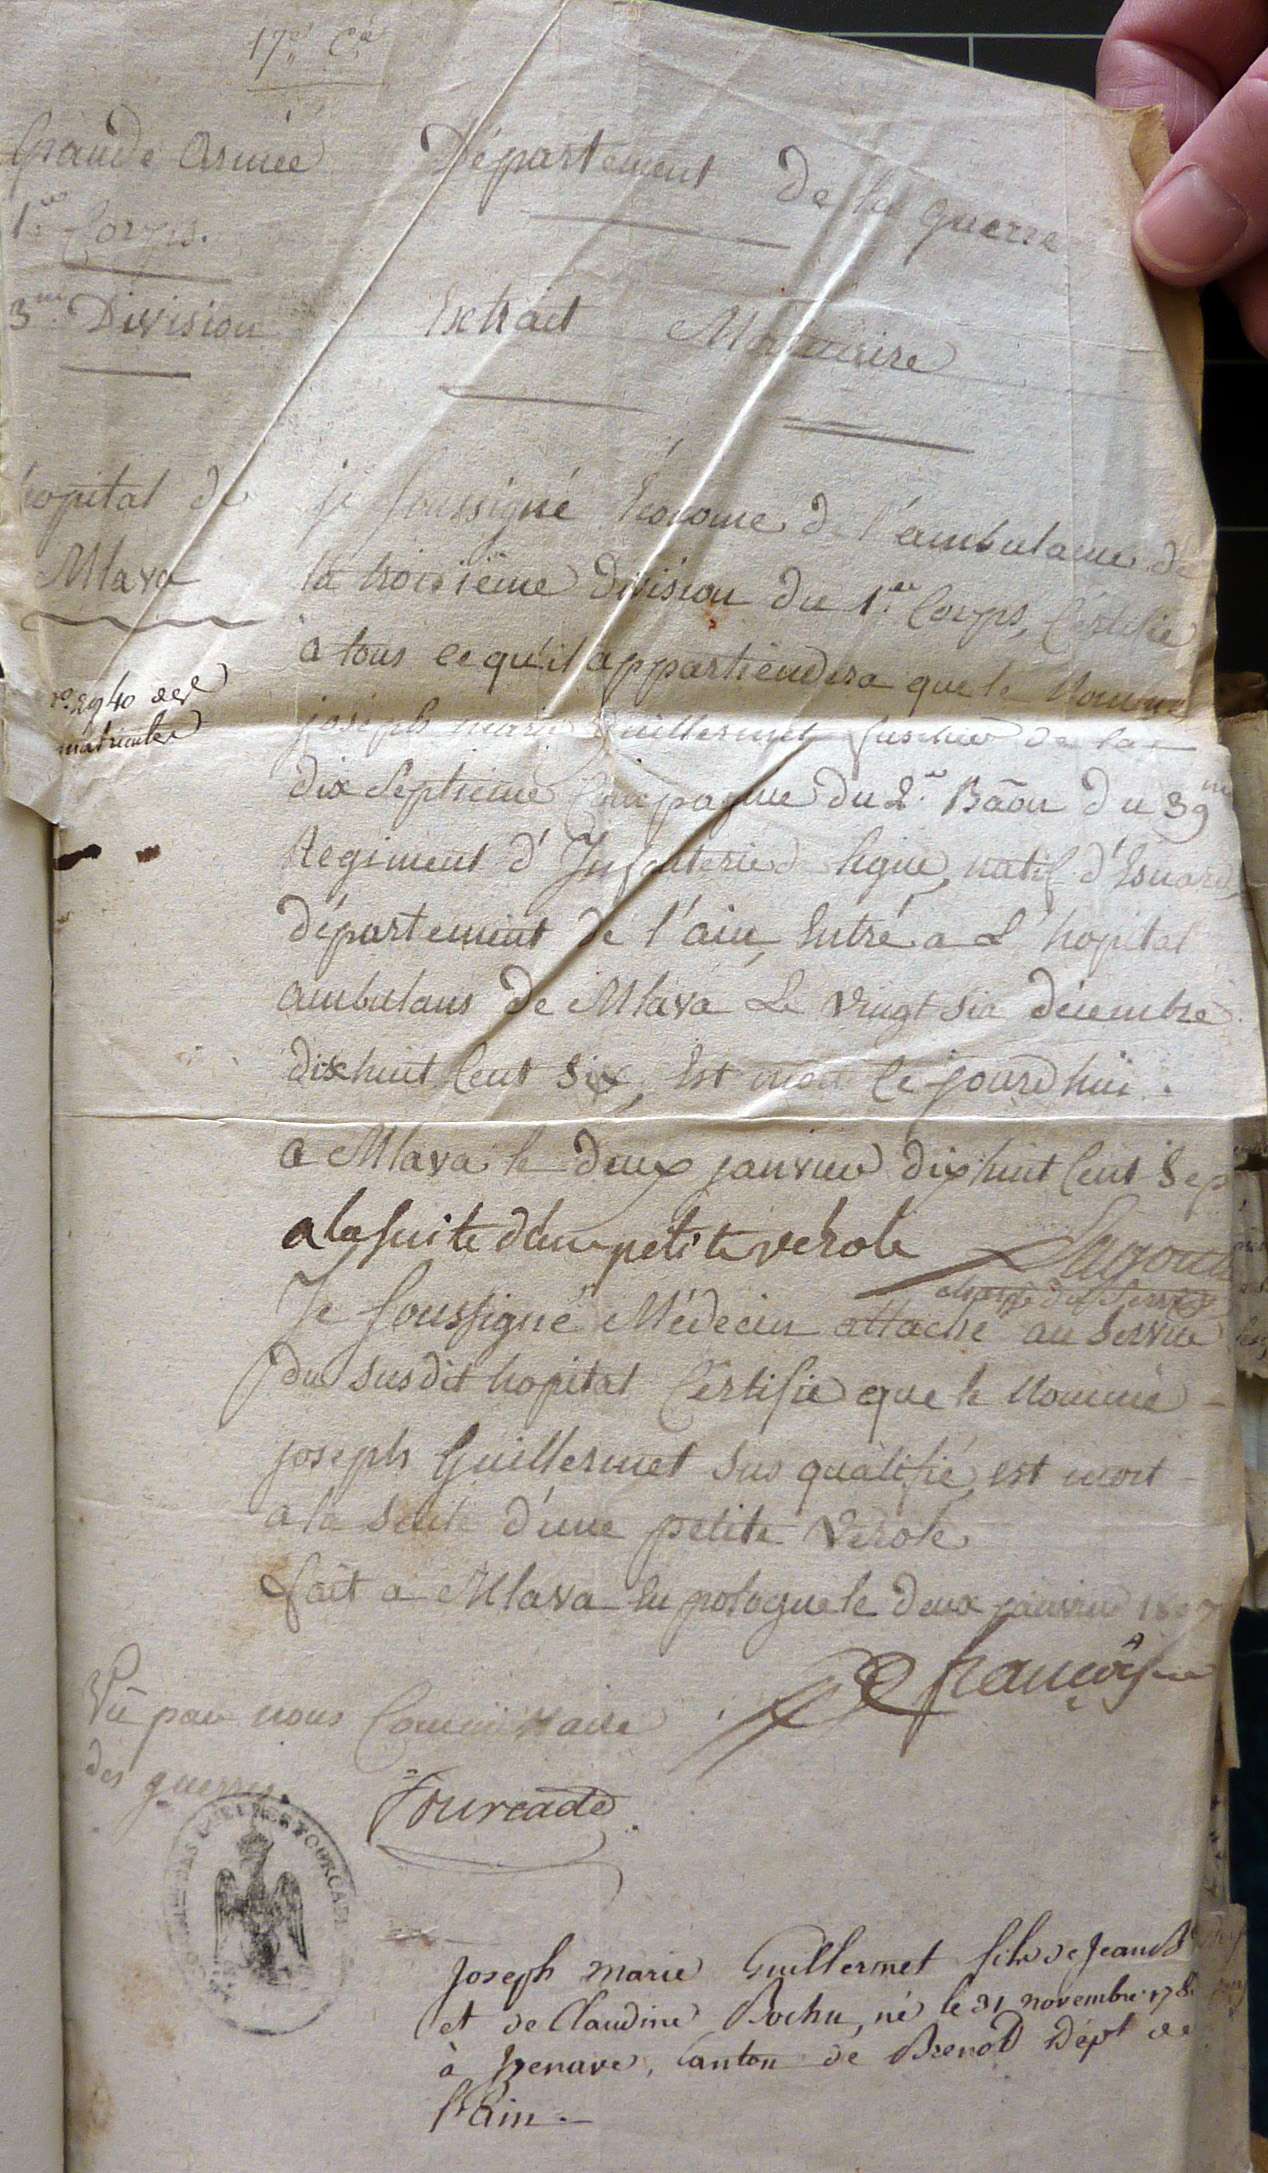 17e Cie
Grande Armée
Département de la guerre
1er Corps.
3me Division
Extrait Mortuaire
hopital de
Mlava
no 2940 de
matricule
je soussigné Econome de l'ambulance de
la troisième Division du 1er Corps, Certifie
a tous ce qu'il appartiendra que le Nommé
joseph marie Guillermet fusilier de la
dix Septieme Compagnie du 2e Bâon du 39me
Regiment d'Infanterie de ligne, natif d'Isnard,
département de l'ain, Entré a L'hopital
ambulans de Mlava Le vingt six décembre
dixhuit Cent six, Est mort Ce jourd'hui.
a Mlava le deux janvier dix huit Cent Sept
a la suite d'une petite vérole
chargé du Service
Je Soussigné Médecin attaché au Service
du susdit hopital Certifie que le Nommé
joseph Guillermet sus qualifié, est mort
a la suite d'une petite Verole
fait a Mlava En pologne le deux janvier 1807
françois
Vû par nous Commissaire
des guerres.
Fourcade
DES GUERRES FOURCADE
Joseph marie Guillermet fils de Jean Bte
et de Claudine Bochu, né le 31 novembre 178
à Izenave, Canton de Brenod Dépt de
l'Ain.